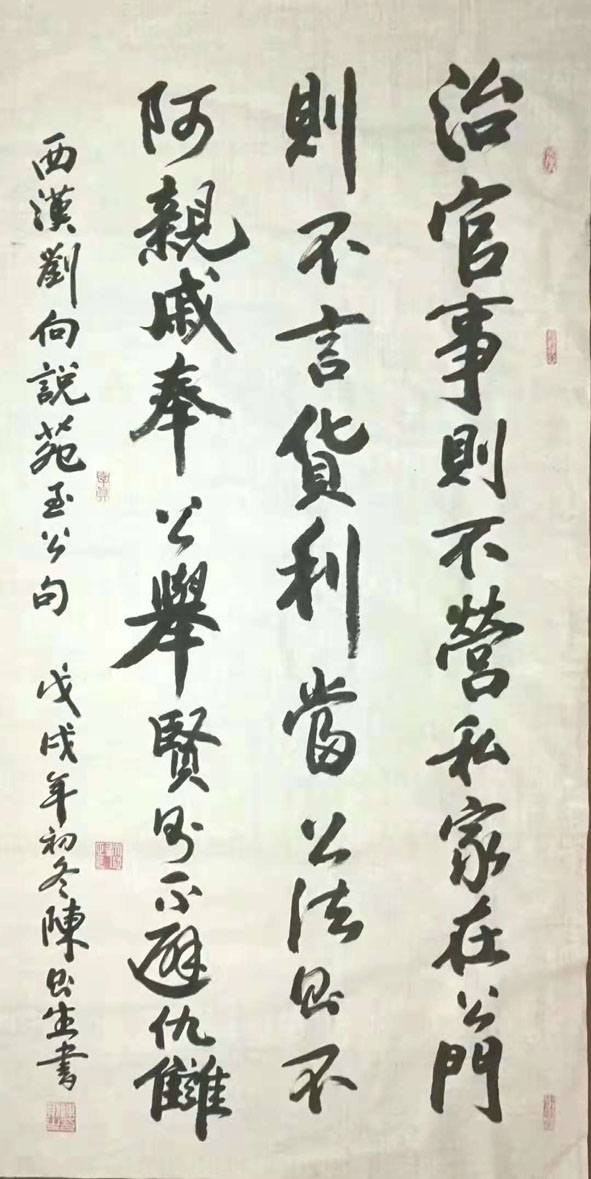 治官事則不營私家在公門
則不言貨利當公法則不
阿親戚奉公舉賢則不避仇讎
西漢劉向說苑至公句 戊戌年初冬陳生書